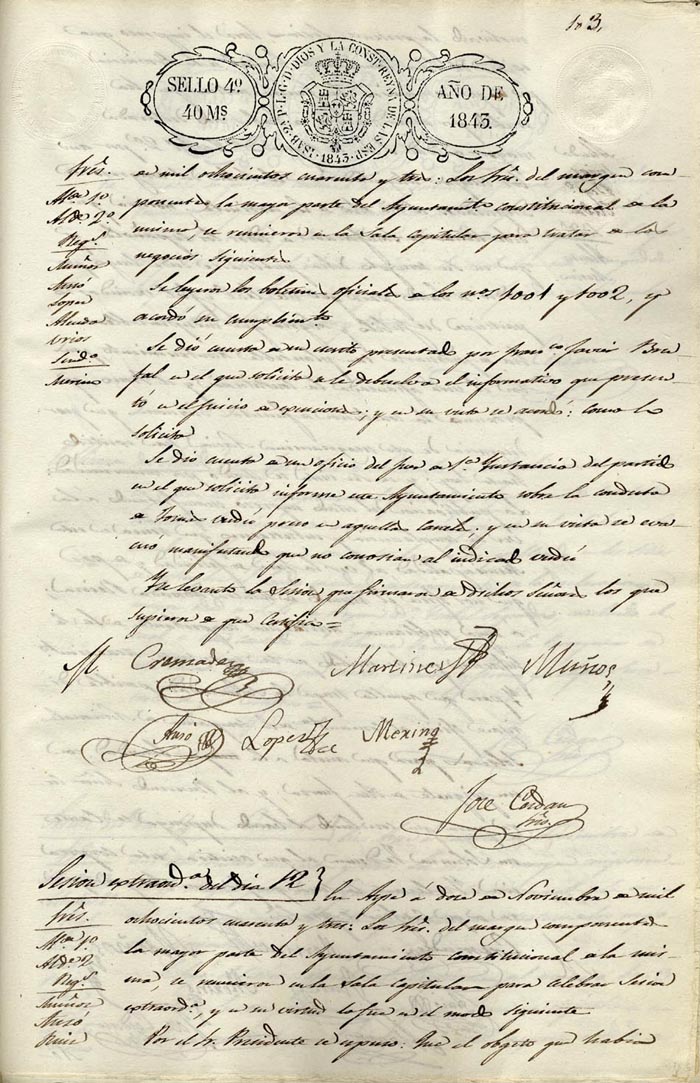 103.
SELLO 4º
40 Ms
ISAB. 2ª P. L. G. D. DIOS Y LA CONST. REYNA DE LAS ESP.
1843
AÑO DE
1843.
Srês.
Alde 1º
Alde 2º
Regs.
Muñoz
Lopez
Urios
Sindº
Merino
de mil ochocientos cuarenta y tres: Los Srês. del margen com-
ponentes la mayor parte del Ayuntamitº constitucional de la
misma, se reunieron en la Sala Capitular para tratar de los
negocios siguientes
Se leyeron los boletines oficiales de los nos. 1001 y 1002, y
acordó su cumplimto
Se dió cuenta de un escrito presentado por Franco Javier
en el que solicita se le debuelva el informativo que presen-
tó en el juicio de esenciones; y en su vista se acordó: como lo
solicita
Se dio cuenta de un oficio del Juez de 1ª Ynstancia del partido
en el que solicita informe este Ayuntamiento sobre la conducta
de Tomás preso en aquella carcel; y en su vista se eva-
cuó manifestando que no conosian al indicado
Ya levantó la Sesion que firmaron de dichos Señores los que
supieron de que Certifico =
Cremades
Martinez
Muños
Lopez
Merino
Jose Cerdan
Srio.
Sesion extraordª del dia 12
En Aspe á doce de Noviembre de mil
Srês.
Alde 1º
Alde 2º
Regs.
Muñoz
ochocientos cuarenta y tres: Los Srês. del margen componentes
la mayor parte del Ayuntamiento constitucional de la mis-
ma, se reunieron en la Sala Capitular para celebrar Sesion
extraordª, y en su virtud lo fue en el modo siguiente
Por el Sr. Presidente se espuso: Que el objeto que habia